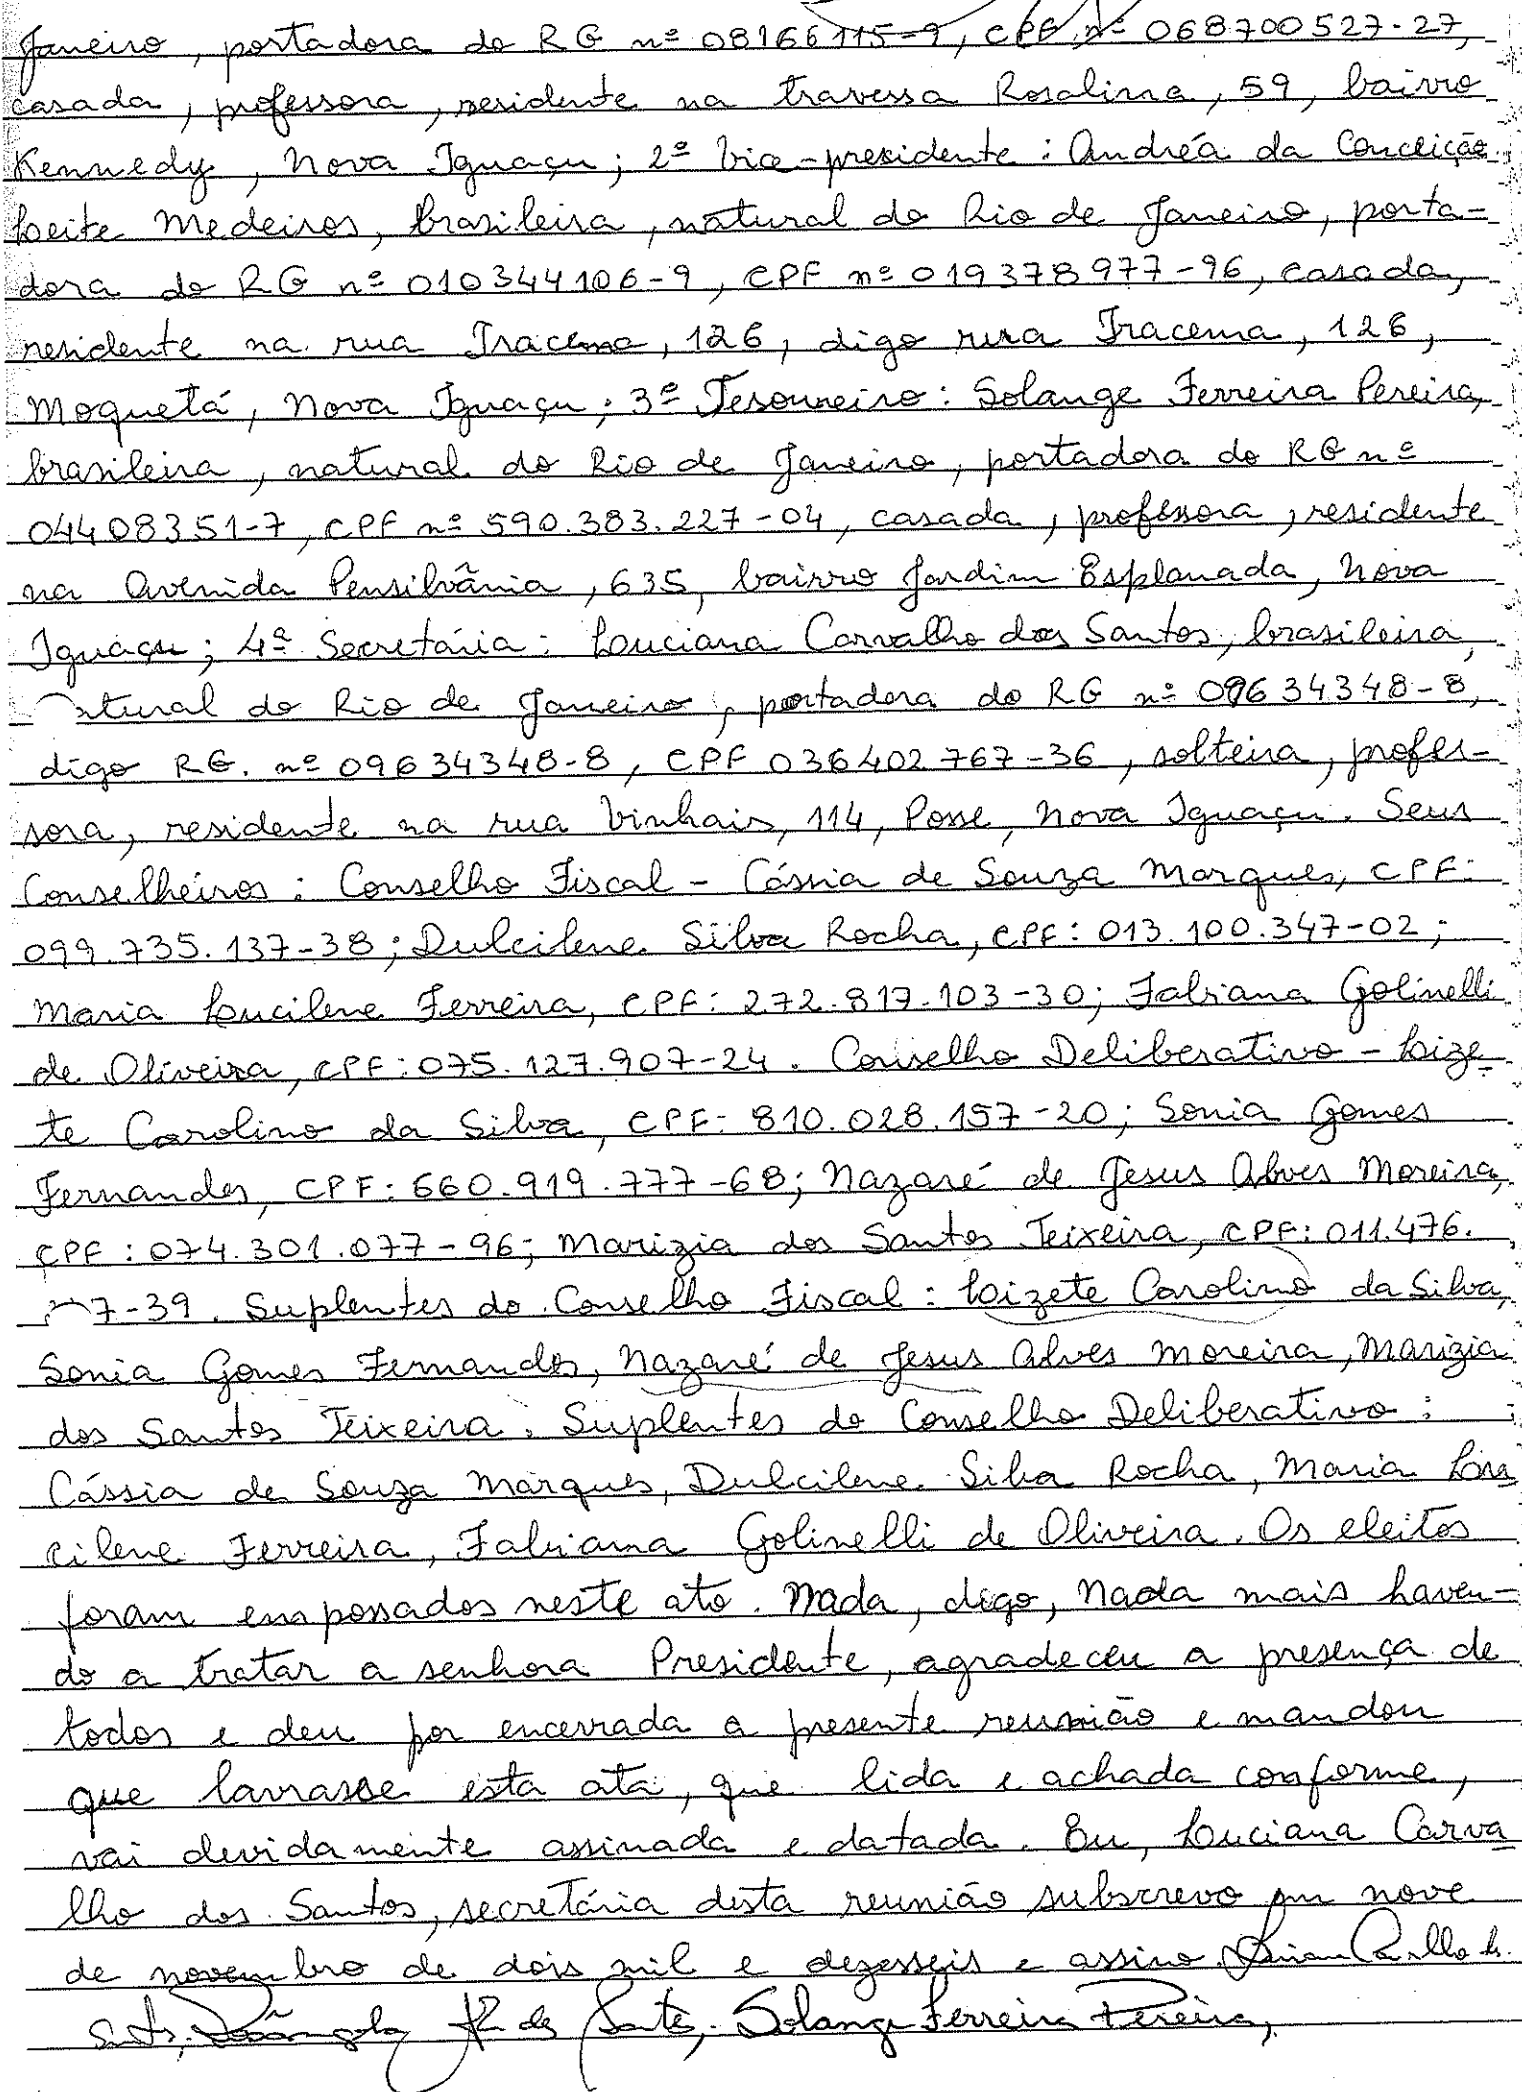 Janeiro, portadora do RG nº 08166115-9, CPF nº 068700527-27,
casada, professora, residente na travessa Rosalina, 59, bairro
Kennedy, Nova Iguaçu; 2ª Vice-presidente: Andréa da Conceição
Leite Medeiros, brasileira, natural do Rio de Janeiro, porta-
dora do RG nº 010344106-9, CPF nº 019378977-96, casada,
residente na rua Iracema, 126, digo rua Iracema, 126,
Moquetá, Nova Iguaçu; 3º Tesoureiro: Solange Ferreira Pereira,
brasileira, natural do Rio de Janeiro, portadora do RG nº
04408351-7, CPF nº 590.383.227-04, casada, professora, residente
na Avenida Pensilvânia, 635, bairro Jardim Esplanada, Nova
Iguaçu; 4ª Secretária: Luciana Carvalho dos Santos, brasileira,
atural do Rio de Janeiro, portadora do RG nº 09634348-8,
digo RG. nº 09634348-8, CPF 036402767-36, solteira, profes-
sora, residente na rua Vinhais, 114, Posse, Nova Iguaçu. Seus
Conselheiros: Conselho Fiscal - Cássia de Souza Marques, CPF:
099.735.137-38; Dulcilene Silva Rocha, CPF: 013.100.347-02;
Maria Lucilene Ferreira, CPF: 272.817.103-30; Fabiana Golinelli
de Oliveira, CPF: 075.127.907-24. Conselho Deliberativo - Lize-
te Carolino da Silva, CPF: 810.028.157-20; Sonia Gomes
Fernandes, CPF: 660.919.777-68; Nazaré de Jesus Alves Moreira,
CPF: 074.301.077-96; Marizia dos Santos Teixeira, CPF: 011.476.
7-39. Suplentes do Conselho Fiscal: Lizete Carolino da Silva,
Sonia Gomes Fernandes, Nazaré de Jesus Alves Moreira, Marizia
dos Santos Teixeira. Suplentes do Conselho Deliberativo:
Cássia de Souza Marques, Dulcilene Silva Rocha, Maria Lu
cilene Ferreira, Fabiana Golinelli de Oliveira. Os eleitos
foram empossados neste ato. Mada, digo, Nada mais haven-
do a tratar a senhora Presidente, agradeceu a presença de
todos e deu por encerrada a presente reunião e mandou
que lavrasse esta ata, que lida e achada conforme,
vai devidamente assinada e datada. Eu, Luciana Carva
lho dos Santos, secretária desta reunião subscrevo em nove
de novembro de dois mil e dezesseis e assino.
Solange Ferreira Pereira,